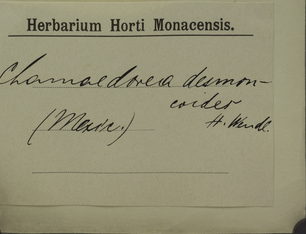 Herbarium Horti Monacensis.
Chamaedorea desmon-
coides
H. Wendl.
(Mexic.)